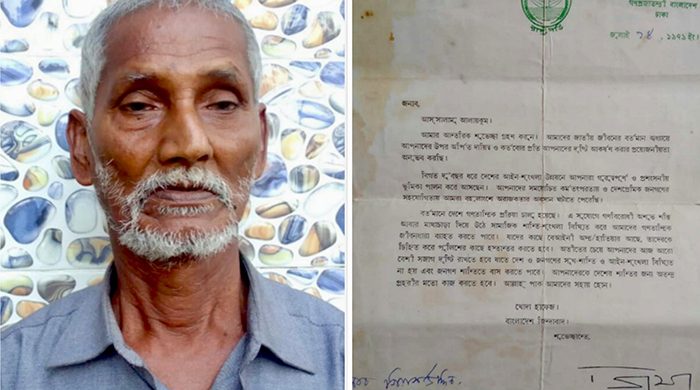 গণপ্রজাতন্ত্রী বাংলাদেশ
ঢাকা
জুলাই ২৪, ১৯৭৯ ইং।
জনাব,
আস্‌সালামু আলায়কুম।
আমার আন্তরিক শুভেচ্ছা গ্রহণ করুন। আমাদের জাতীয় জীবনের বর্তমান অধ্যায়ে
আপনাদের উপর অর্পিত দায়িত্ব ও কর্তব্যের প্রতি আপনাদের দৃষ্টি আকর্ষণ করার প্রয়োজনীয়তা
অনুভব করছি।
বিগত দু'বছর ধরে দেশের আইন-শৃংখলা উন্নয়নে আপনারা গুরুত্বপূর্ণ ও প্রশংসনীয়
ভূমিকা পালন করে আসছেন। আপনাদের সময়োচিত কর্মতৎপরতায় ও দেশপ্রেমিক জনগণের
সহযোগিতায় আমরা বহুলাংশে অরাজকতার অবসান ঘটাতে পেরেছি।
বর্তমানে দেশে গণতান্ত্রিক প্রক্রিয়া চালু হয়েছে। এ সুযোগে গণবিরোধী অশুভ শক্তি
আবার মাথাচাড়া দিয়ে উঠে সামাজিক শান্তি-শৃংখলা বিঘ্নিত করে আমাদের গণতান্ত্রিক
জীবনধারা ব্যাহত করতে পারে। যাদের কাছে বেআইনী অস্ত্র/হাতিয়ার আছে, তাদেরকে
চিহ্নিত করে পুলিশের কাছে হস্তান্তর করতে হবে। অতীতের চেয়ে আপনাদের আজ আরো
বেশী সজাগ দৃষ্টি রাখতে হবে যাতে দেশ ও জনগণের সুখ-শান্তি ও আইন-শৃংখলা বিঘ্নিত
না হয় এবং জনগণ শান্তিতে বাস করতে পারে। আপনাদেরকে দেশের শান্তির জন্য অতন্দ্র
প্রহরীর মতো কাজ করতে হবে। আল্লাহ্ পাক আমাদের সহায় হোন।
খোদা হাফেজ।
বাংলাদেশ জিন্দাবাদ।
শুভেচ্ছান্তে,